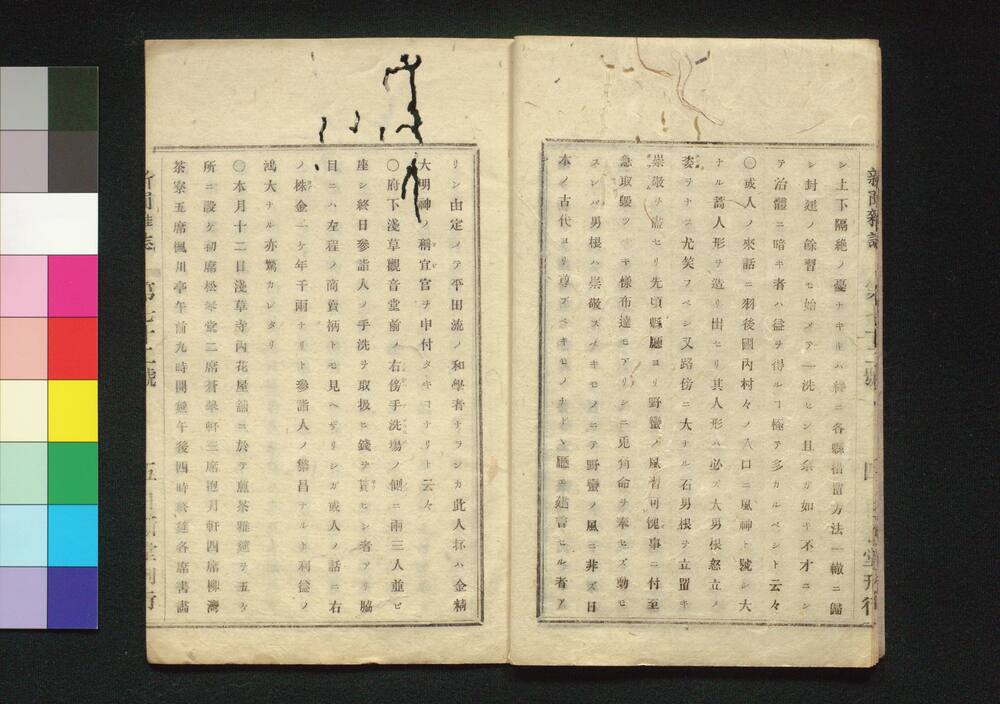 シ上下隔絶ノ憂ナキトハ終ニ各縣稽富方法一轍ニ歸
シ封廷ノ餘習モ始メテ一洗セン且余ガ如キ不才ニシ
テ治體ニ暗キ者ハ益ヲ得ルヿ極テ多カルベシト云々
〇或人ノ來話ニ羽後國內村々ノ入口ニ風神ト號シ大
ナル藁人形ヲ造リ出セリ其人形ハ必ズ大男根怒立ノ
姿ヲナス尤笑フベシ又路傍ニ大ナル石男根ヲ立置キ
崇敬ヲ盡セリ先頃縣廳ヨリ野蠻ノ風習可愧事ニ付至
急取毀ツ可キ樣布達モアリシニ兎角命ヲ奉セズ動モ
スレバ男根ハ崇敬スベキモノニテ野蠻ノ風ニ非ズ日
本ノ古代ヨリ尊ズベキモノナドヽ廳ヘ建言セル者ア
リシ由定メテ平田流ノ和學者ナランカ此人抔ハ金精
大明神ノ稱宜官ヲ申付タキヿナリト云々
〇府下淺草觀音堂前ノ右傍手洗場ノ側ニ兩三人並ビ
座シ終日參詣人ノ手洗ヲ取扱ヒ錢ヲ貰ヒシ者アリ脇
目ニハ左程ノ商賣柄トモ見ヘザリシガ或人ノ話ニ右
ノ株金一ケ年千兩ナリト參詣人ノ繁昌ナルト利益ノ
鴻大ナル亦驚カレタリ
〇本月十二日淺草寺內花屋舖ニ於テ煎茶雅筵ヲ五ケ
所ニ設ケ初席松琴堂二席蒼翠軒三席抱月軒四席柳灣
茶寮五席楓川亭午前九時開筵午後四時終筵各席書畵